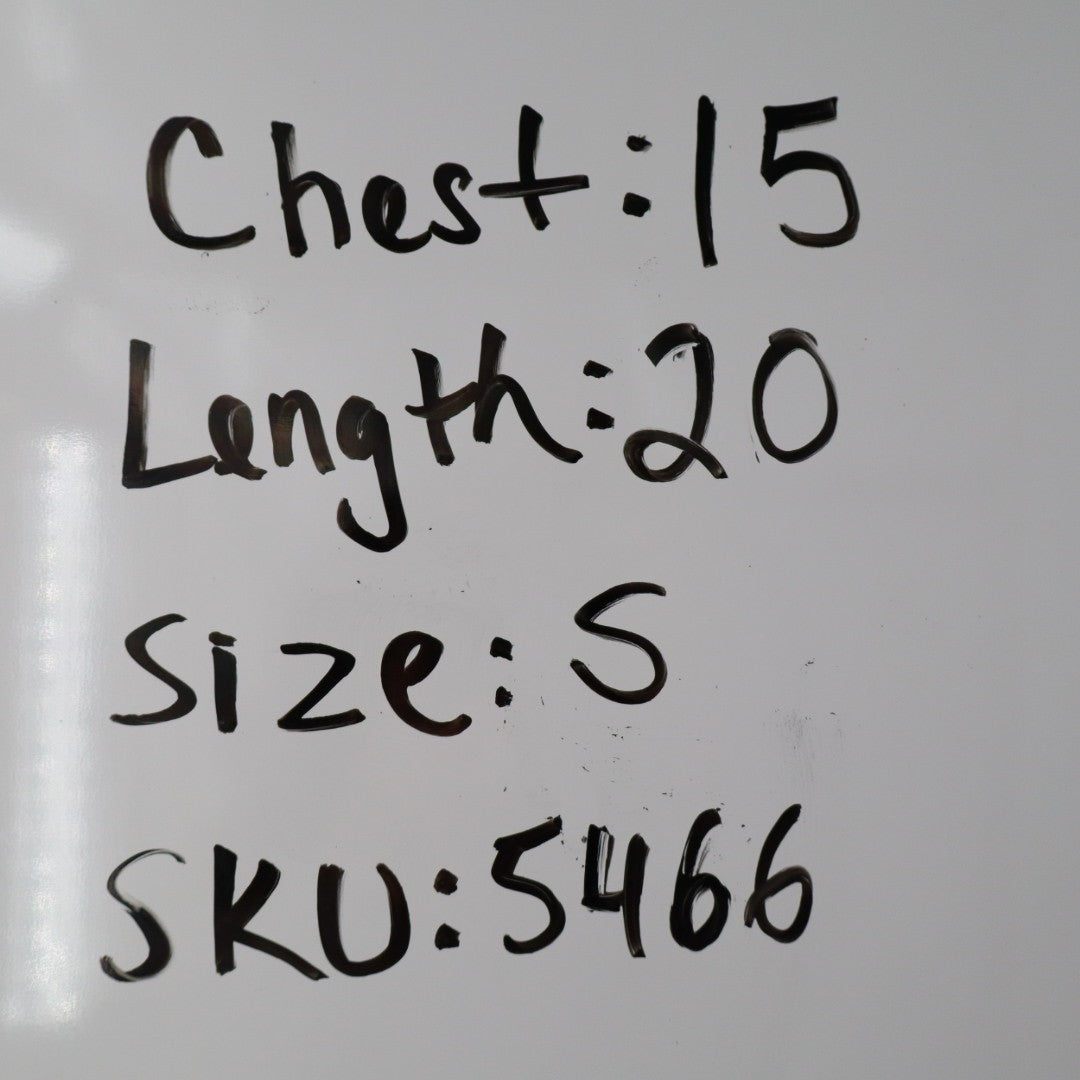 Chest:15
Length:20
Size: S
SKU:5466